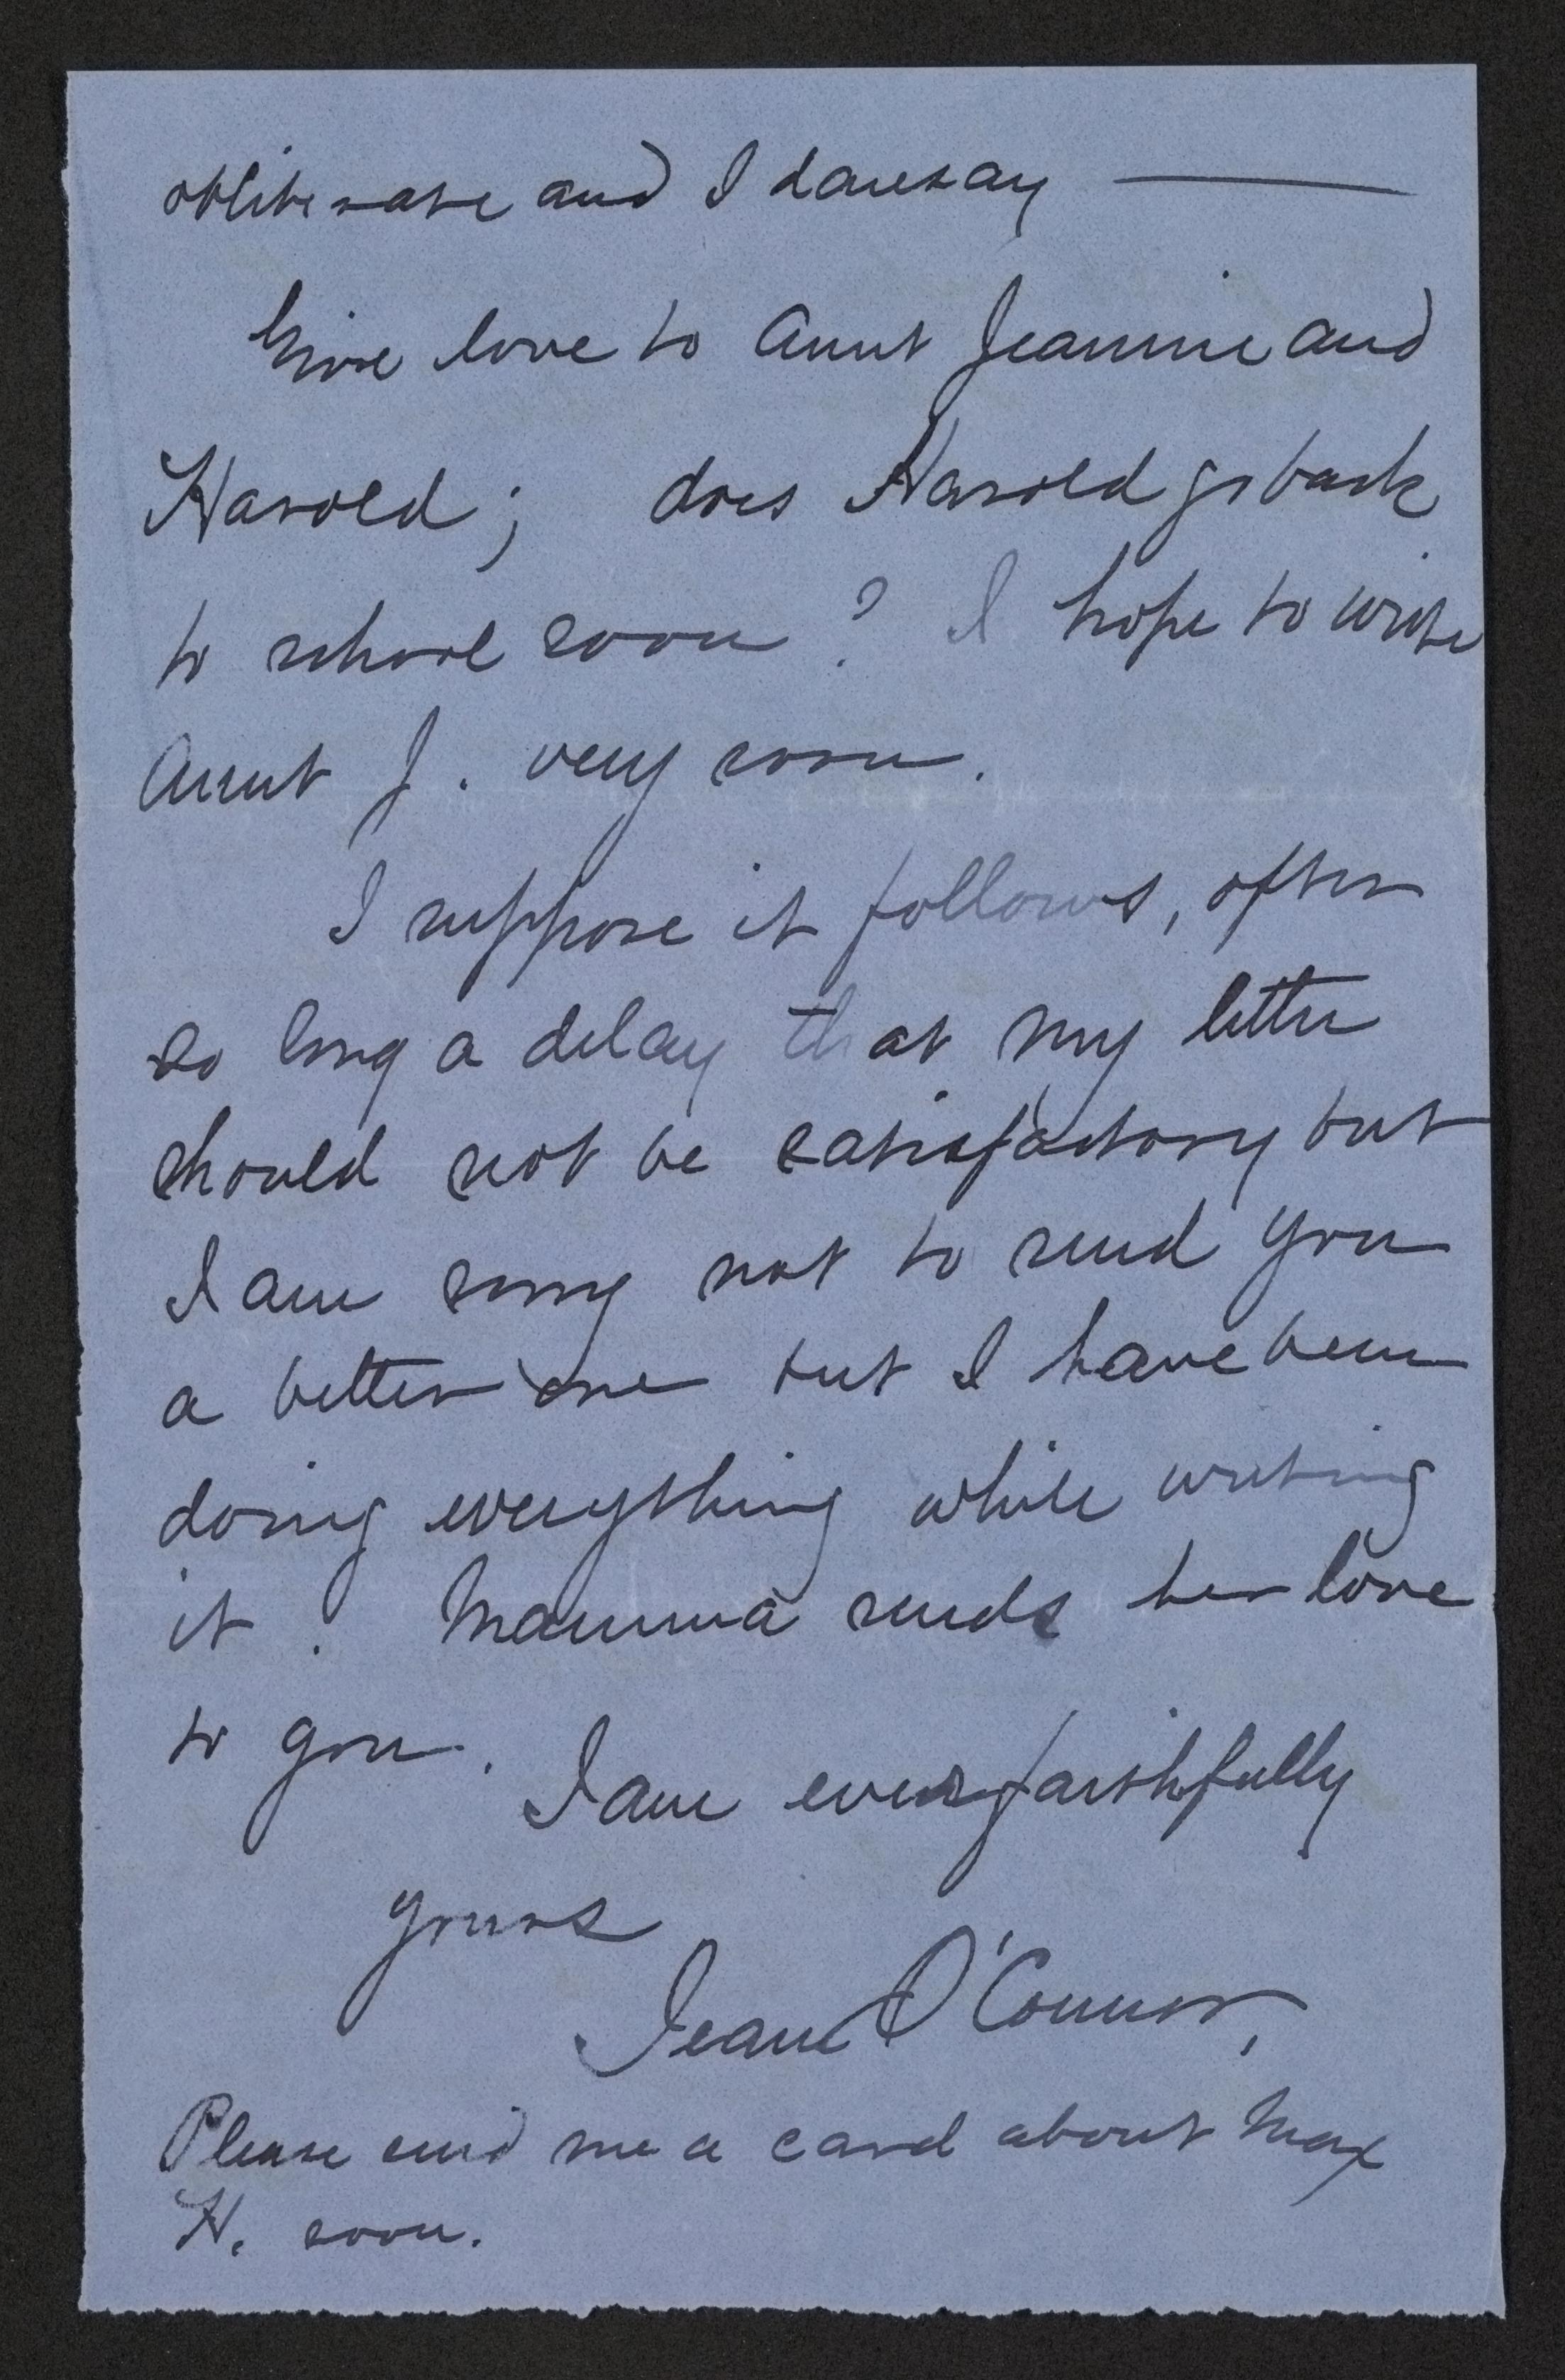 obliterate and I daresay ———
Give love to Aunt Jeannie and
Harold; does Harold go back
to school soon? I hope to write
Aunt J. very soon.
I suppose it follows, after
so long a delay that my letter
should not be satisfactory but
I am sorry not to send you
a better one but I have been
doing everything while writing
it. Mamma sends her love
to you.
I am ever faithfully
yours
Jean O'Connor,
Please send me a card about Max
H. soon.